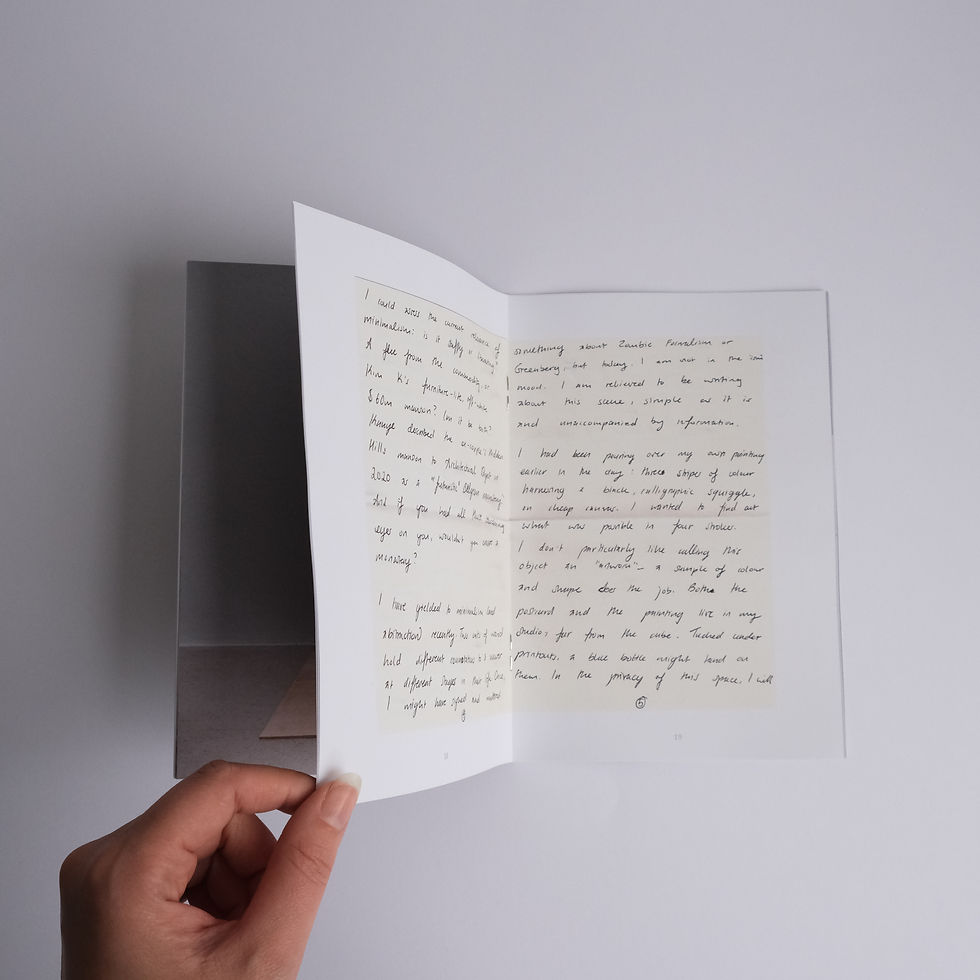 I could assess the current relevance of
minimalism: is it
A flee from the commodity, or
Kim K's furniture-lite, off-white
$60m mansion? Can it be both?
Kanye described the Hidden
Hills mansion to Architectural Digest in
2020 as a "futuristic Belgian monastery".
And if you had all those
eyes on you, wouldn't you want a
monastery?
I have yielded to minimalism (and
abstraction) recently. The
hold different connotations to a
at different stages in their life. Once,
I might have sighed and muttered
4
18
something about Zombie Formalism or
Greenberg, but today, I am not in the
mood. I am relieved to be writing
about this scene, simple as it is
and unaccompanied by information.
I had been pouring over my own painting
earlier in the day: three stripes of colour
harnessing a black, calligraphic squiggle,
on cheap canvas. I wanted to find out
what was possible in four strokes.
I don't particularly like calling this
object an "artwork" – a sample of colour
and shape does the job. Both the
postcard and the painting live in my
studio, far from the cube. Tucked under
printouts, a blue bottle might land on
them. In the privacy of this space, I will
5
19